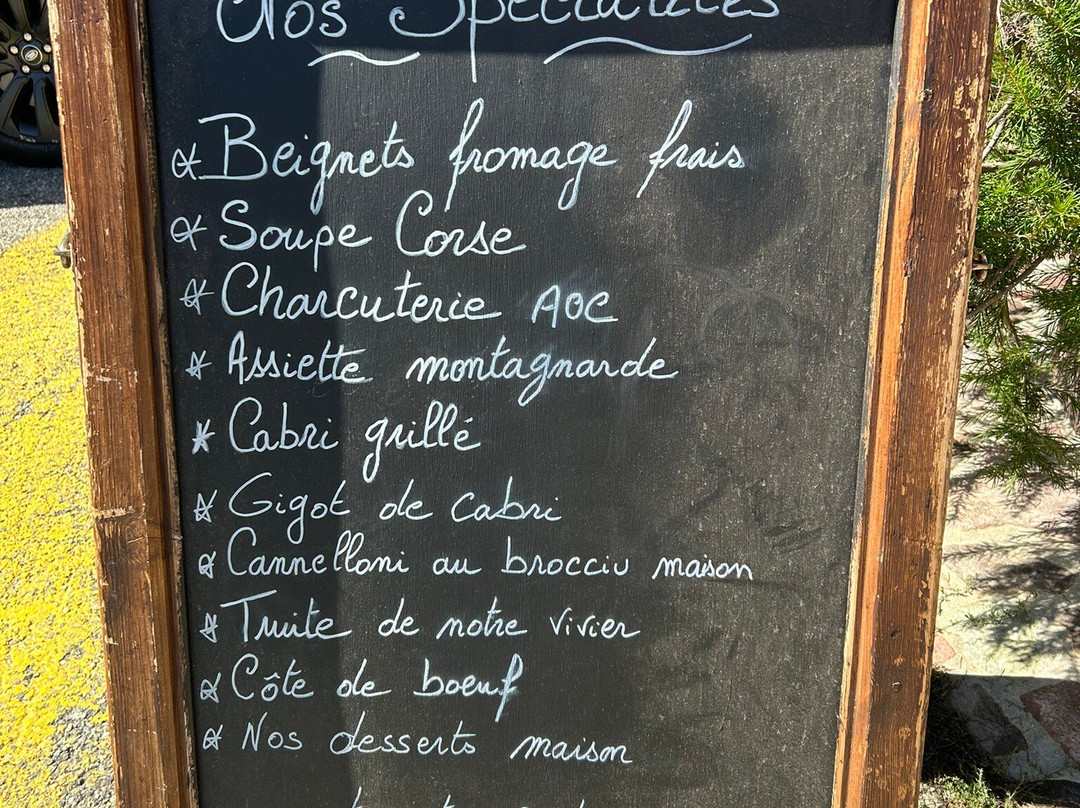 Nos Spécialités
Beignets fromage frais
Soupe Corse
Charcuterie AOC
Assiette montagnarde
Cabri grillé
Gigot de cabri
Cannelloni au brocciu maison
Truite de notre vivier
Côte de boeuf
Nos desserts maison